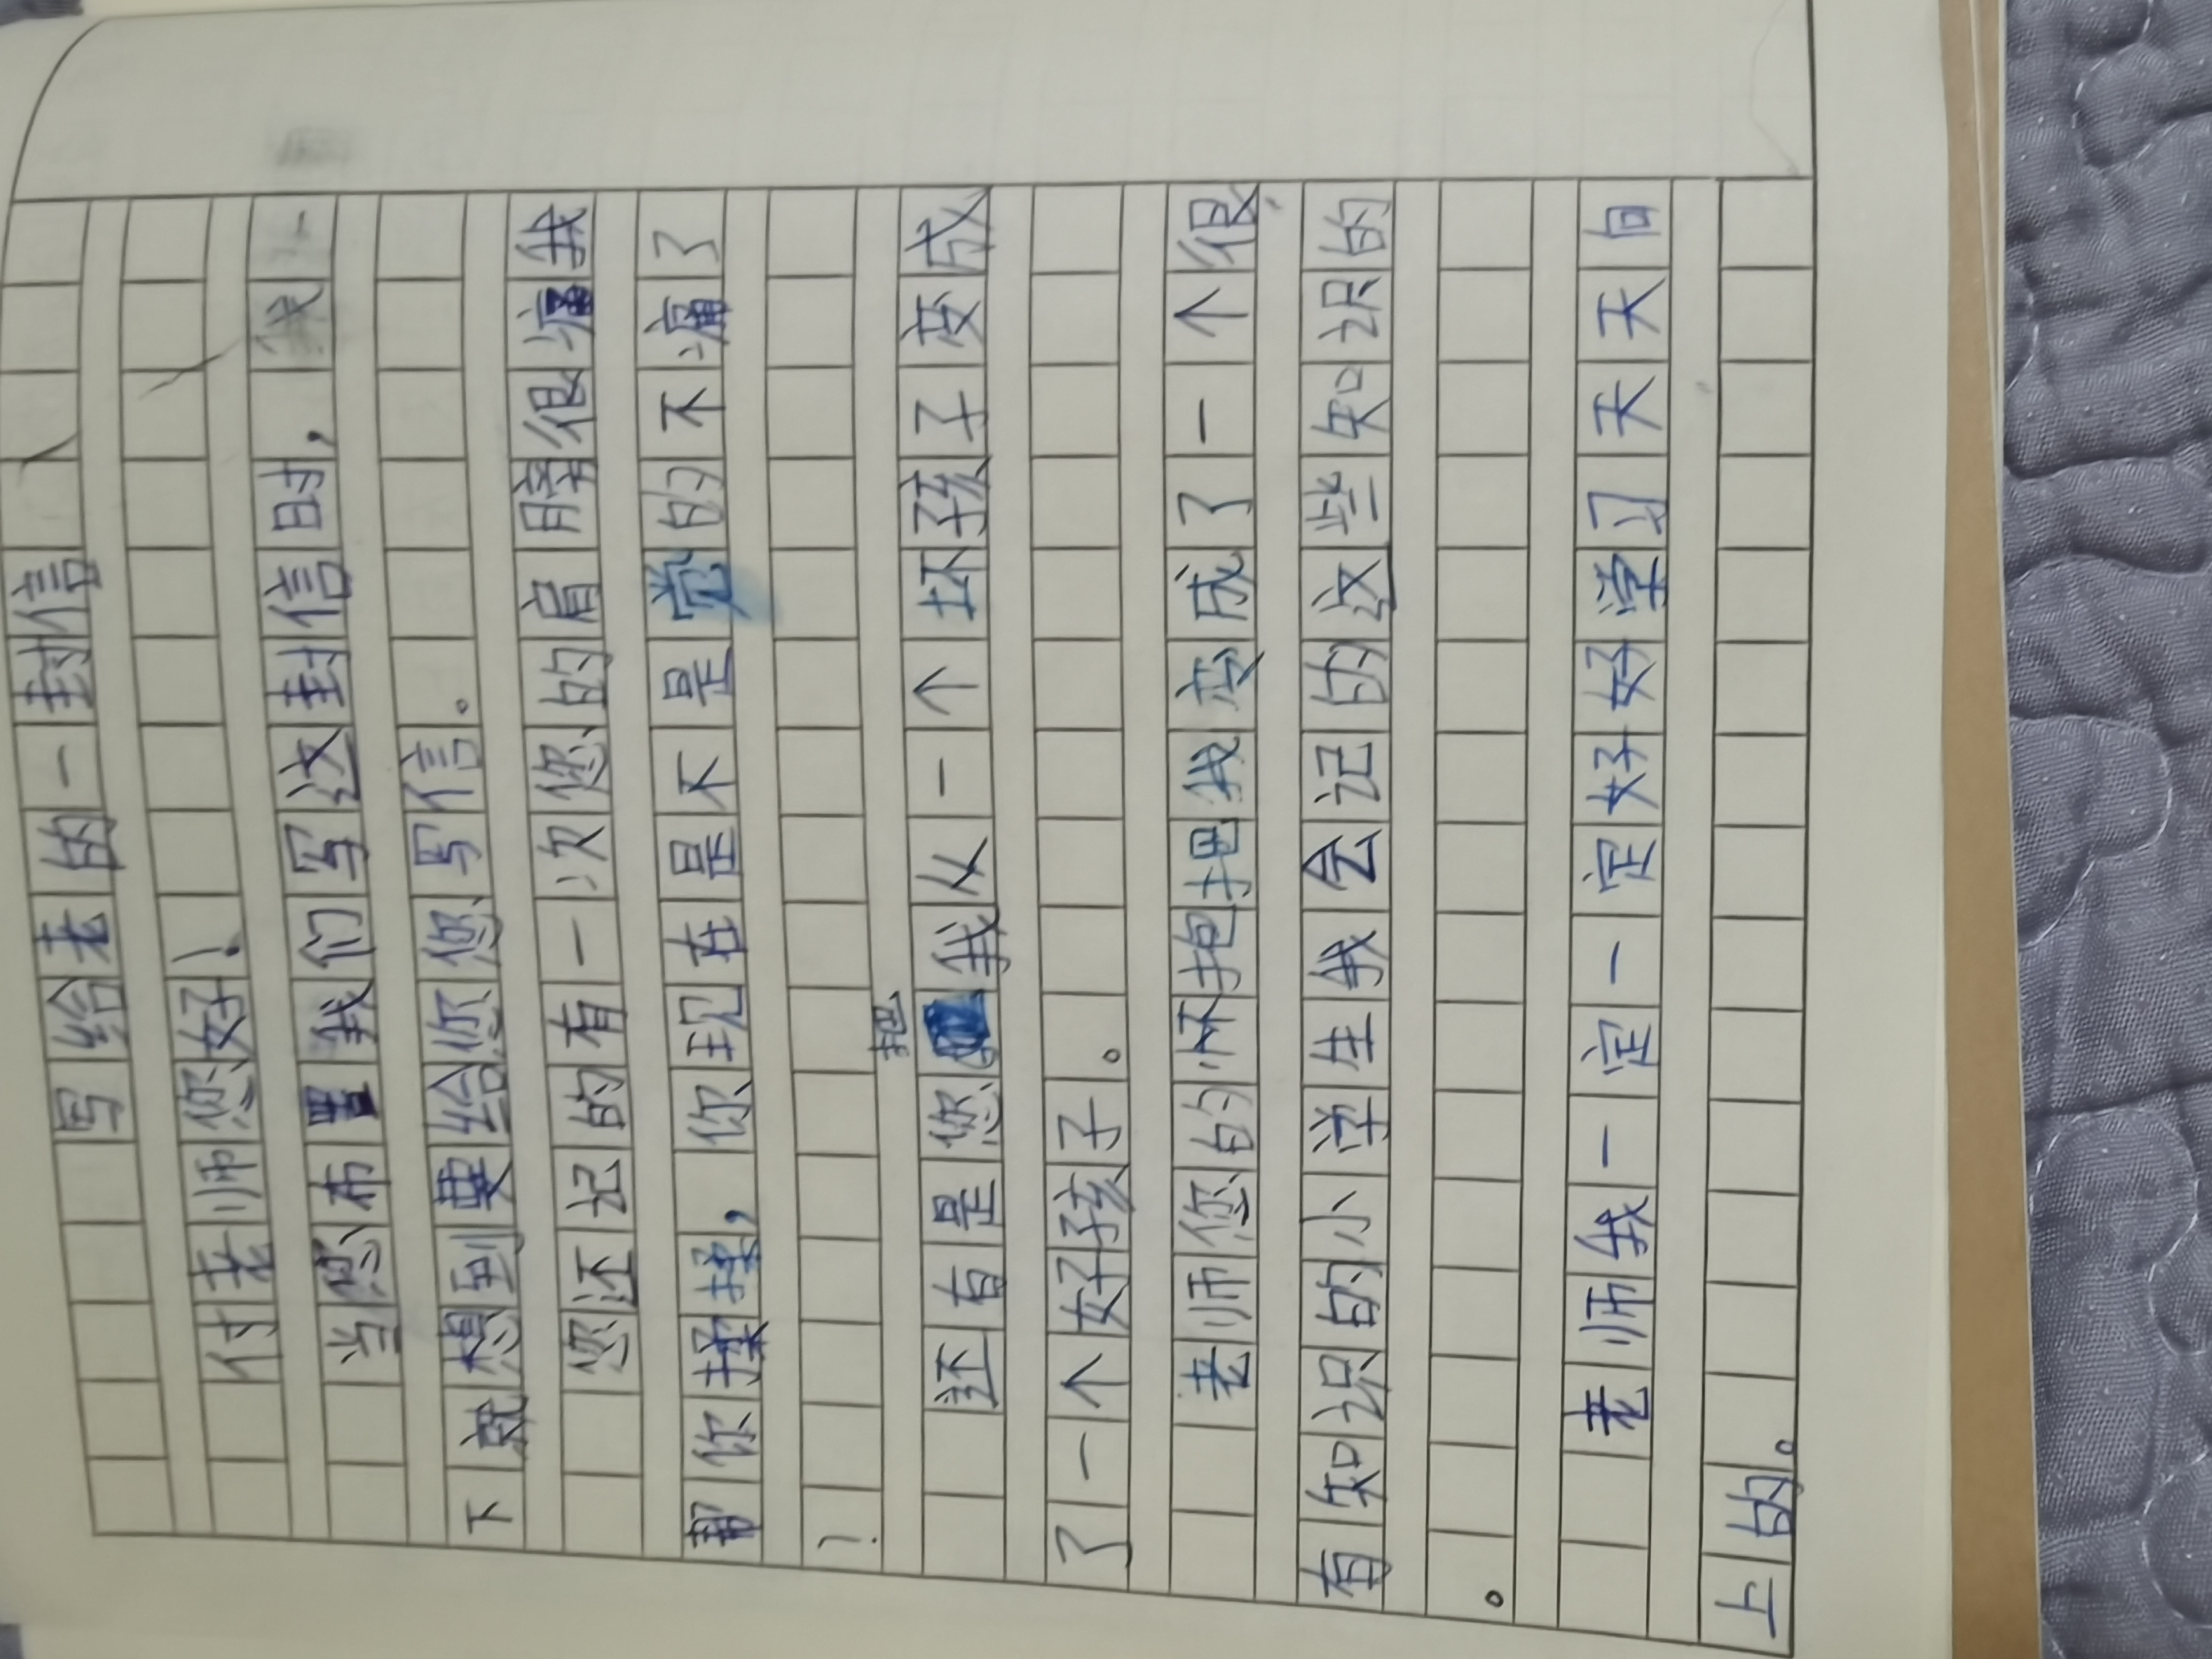 写给老的一封信
付老师您好！
当您布置我们写这封信时，我一
下就想到要给您您写信。
您还记的有一次您的肩膀很痛我
帮你揉揉，你现在是不是觉的不痛了
！
还有是您把我从一个坏孩子变成
了一个好孩子。
老师您的怀抱把我变成了一个很
有知识的小学生我会记的这些知识的
。
老师我一定一定好好学习天天向
上的。